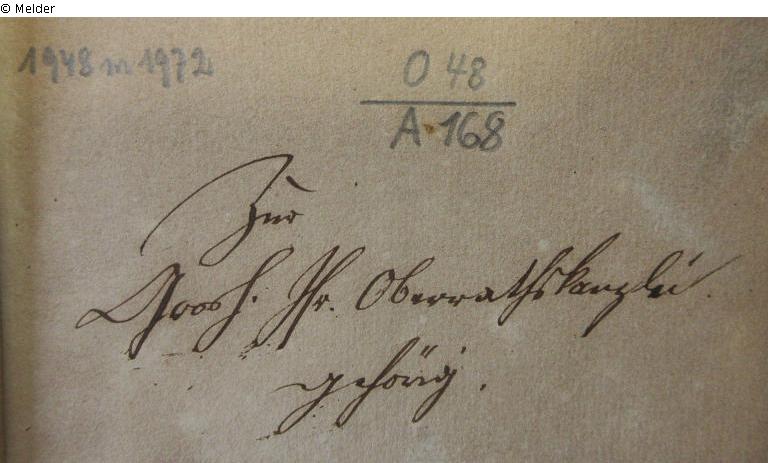 © Melder
1948 m 1972
O 48
A 168
Zur
Grossh. Isr. Oberrathskanzlei
gehörig.